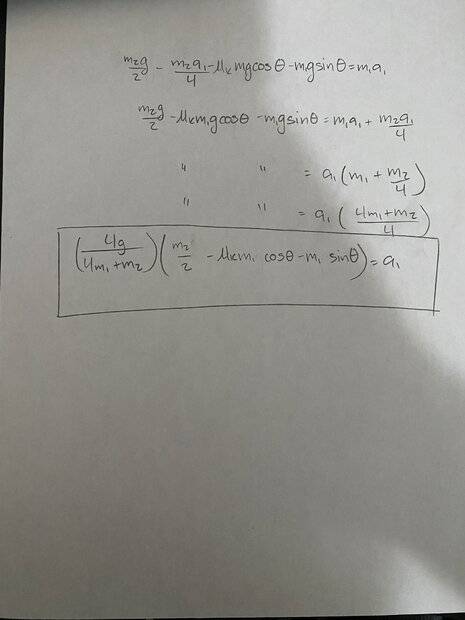 m₂g/2 - m₂a₁/4 - μₖmgcosθ - m₁gsinθ = m₁a₁
m₂g/2 - μₖm₁gcosθ - m₁gsinθ = m₁a₁ + m₂a₁/4
" " = a₁(m₁ + m₂/4)
" " = a₁((4m₁+m₂)/4)
(4g/(4m₁+m₂))(m₂/2 - μₖm₁ cosθ - m₁ sinθ) = a₁